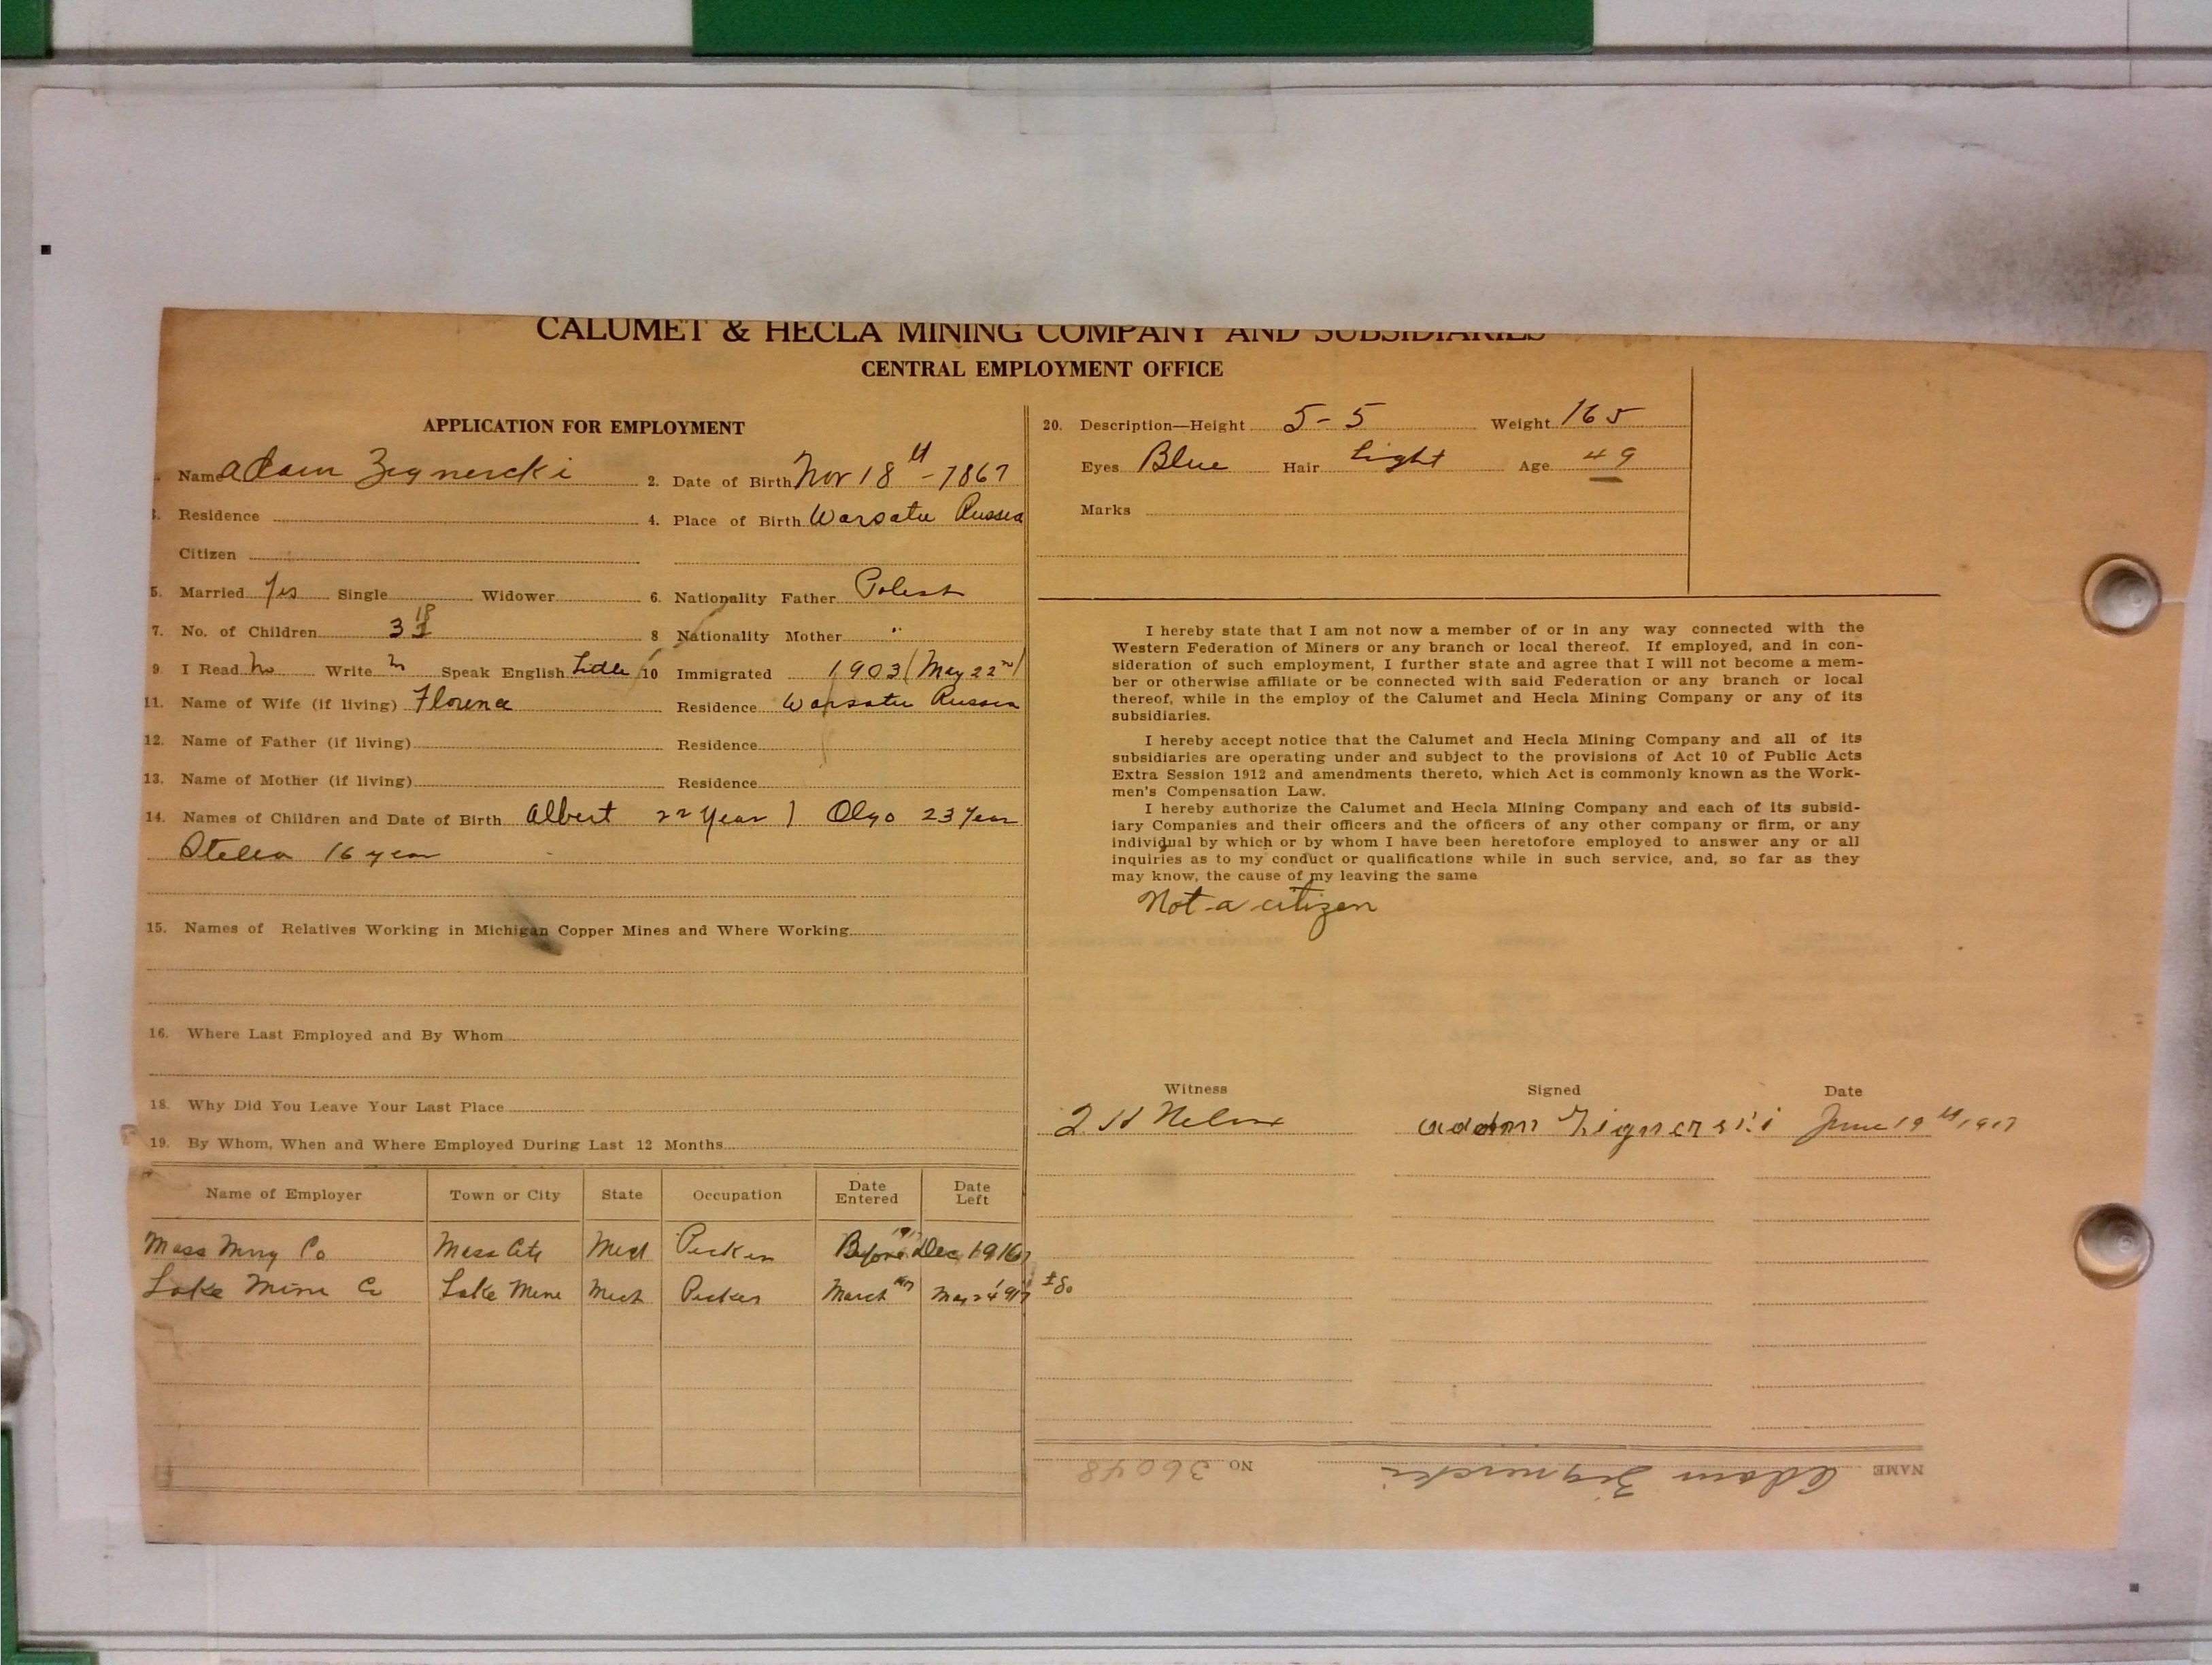 CALUMET & HECLA MINING COMPANY AND SUBSIDIARIES
CENTRAL EMPLOYMENT OFFICE
APPLICATION FOR EMPLOYMENT
Name Adam Zegnercki 2. Date of Birth Nov 18th - 1867
3. Residence 4. Place of Birth Warsatu Russia
Citizen
5. Married Yes Single Widower 6. Nationality Father Polish
7. No. of Children 3 8 Nationality Mother "
9. I Read No Write Speak English 10 Immigrated 1903 (May 22nd)
11. Name of Wife (if living) Florence Residence Warsatu Russia
12. Name of Father (if living) Residence
13. Name of Mother (if living) Residence
14. Names of Children and Date of Birth Albert 22 Year ) Olgo 23 Year
Stella 16 year
15. Names of Relatives Working in Michigan Copper Mines and Where Working
16. Where Last Employed and By Whom
18. Why Did You Leave Your Last Place
19. By Whom, When and Where Employed During Last 12 Months
Name of Employer Town or City State Occupation Date Entered Date Left
Mass Mng Co Mass City Mich Picker Before Dec 1916
Lake Mine Co Lake Mine Mich Picker March 1917 May 24 1917
20. Description—Height 5-5 Weight 165
Eyes Blue Hair Light Age 49
Marks
I hereby state that I am not now a member of or in any way connected with the
Western Federation of Miners or any branch or local thereof. If employed, and in con-
sideration of such employment, I further state and agree that I will not become a mem-
ber or otherwise affiliate or be connected with said Federation or any branch or local
thereof, while in the employ of the Calumet and Hecla Mining Company or any of its
subsidiaries.
I hereby accept notice that the Calumet and Hecla Mining Company and all of its
subsidiaries are operating under and subject to the provisions of Act 10 of Public Acts
Extra Session 1912 and amendments thereto, which Act is commonly known as the Work-
men's Compensation Law.
I hereby authorize the Calumet and Hecla Mining Company and each of its subsid-
iary Companies and their officers and the officers of any other company or firm, or any
individual by which or by whom I have been heretofore employed to answer any or all
inquiries as to my conduct or qualifications while in such service, and, so far as they
may know, the cause of my leaving the same
Not a citizen
Witness Signed Date
Adam Zignerski June 19th 1917
NAME Adam Zignercki NO 36048